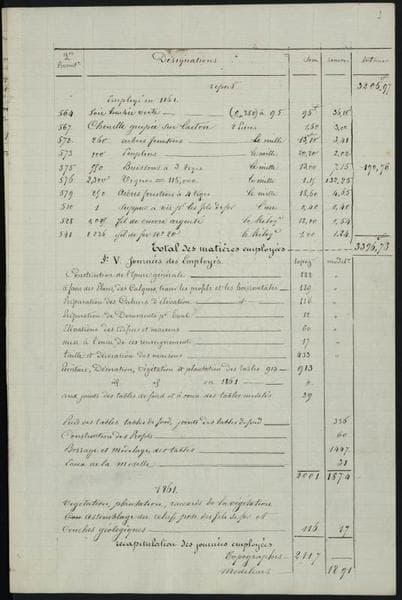 Désignations
report 3206,97
Employé en 1861.
564 Soie hachée verte (0,380) à 95
567 Chenille guipée sur laiton 2 pièces 1,50 3,00
572 260 arbres fruitiers le mille
573 100 Peupliers le mille 20,20 2,02
575 550 Buissons à 3 tiges le mille 13,00 7,15 190,76
576 Vignes le mille 132,25
579 250 Arbres fruitiers à 4 tiges le mille 18,60 4,65
520 1 les fils de fer l'une 0,40 0,40
528 fil de cuivre argenté le kilog. 0,54
541 1.226 fil de fer Nº 20 le kilog.
total des matières employées 3396,73
§. V. Journées des Employés. topog. model.
Construction de l'épure générale 122
Préparation des Cahiers d'élévation 116
Préparation de Documents pr 12
Elévations des édifices et maisons 60
mise à l'encre de ces renseignements 17
taille et décoration des maisons 433
Peinture, Décoration, végétation & plantation des tables 913 913
id. id. en 1861
aux joints des tables de fond et à ceux des tables modelés 29
Pieds des tables, tables de fond, joints des tables de fond 336
Construction des Profils 60
Bossage et modelage des tables 1447
Eaux de la Moselle 31
2001 1874
1861.
végétation, plantation, raccords de la végétation
assemblage du relief, pose des fils de fer et
Couches géologiques 116 17
récapitulation des journées employées
Topographes 2117
Modeleurs 1891